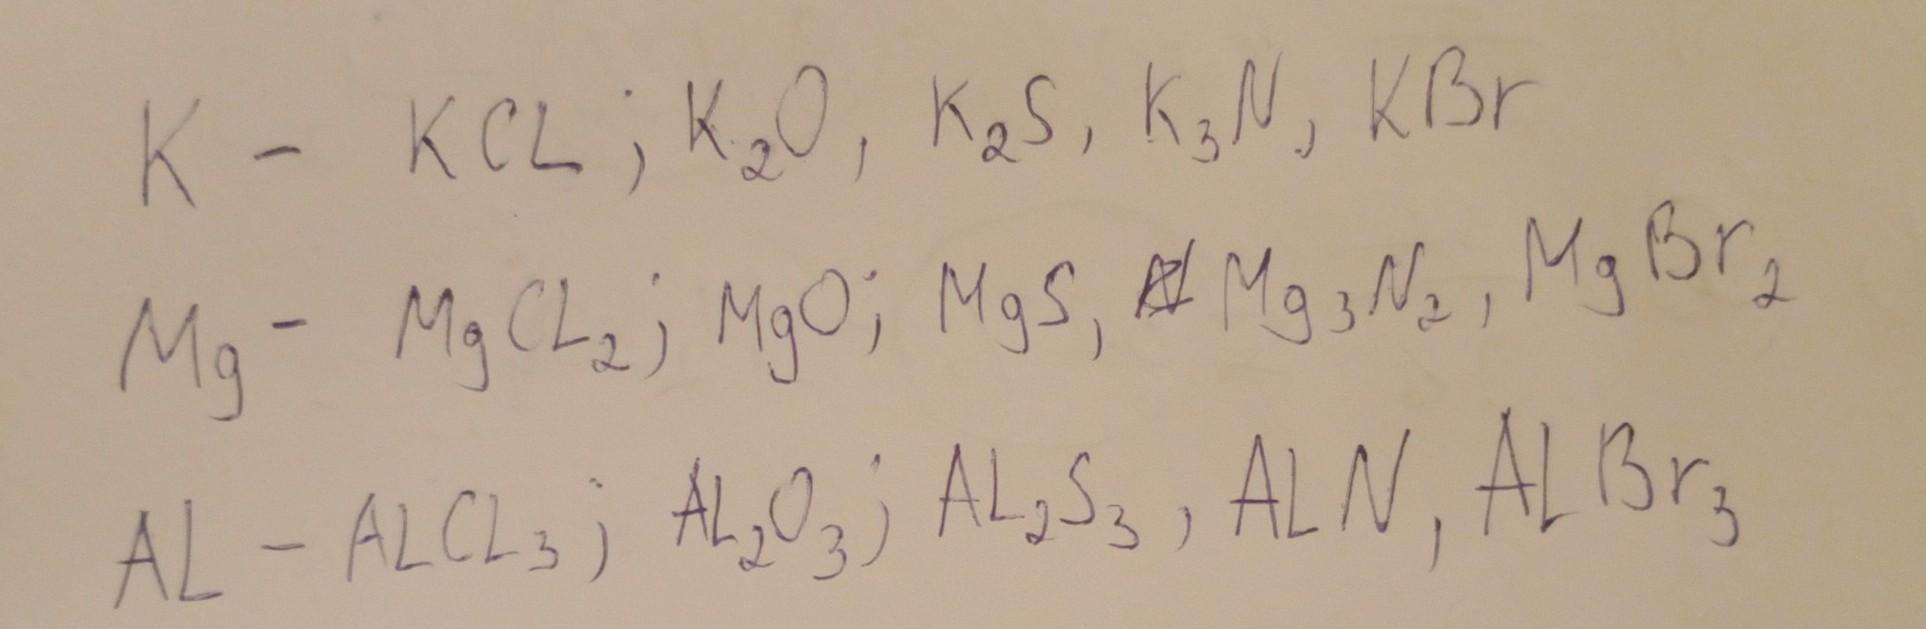 K - KCL; K₂O, K₂S, K₃N, KBr
Mg - MgCL₂; MgO; MgS, Mg₃N₂, MgBr₂
AL - ALCL₃; AL₂O₃; AL₂S₃, ALN, ALBr₃